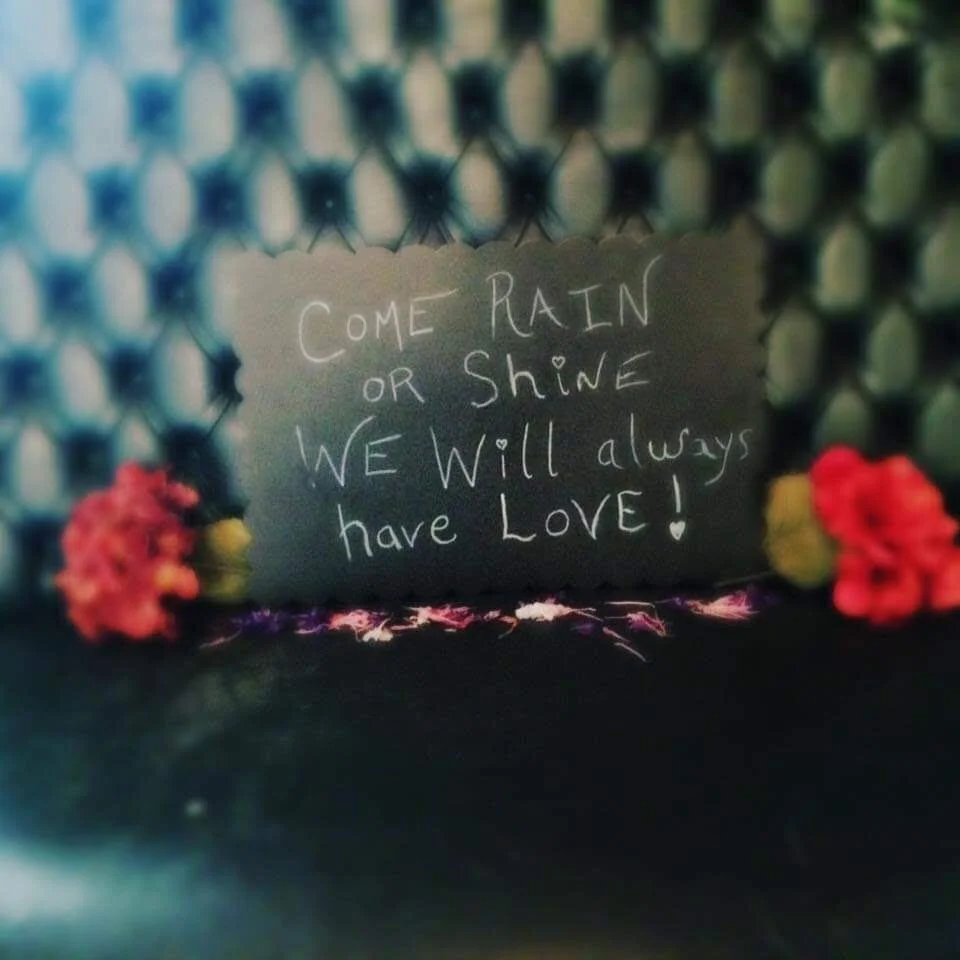 COME RAIN
OR ShiNE
WE Will always
have LOVE!